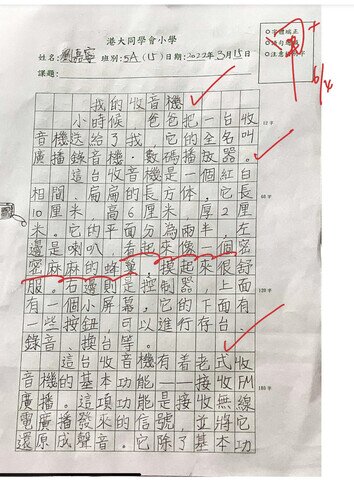 港大同學會小學
姓名: 劉嘉寧 班別: 5A (15) 日期: 2022年3月15日
課題:
我的收音機
小時候，爸爸把一台收
音機送給了我，它的全名叫
廣播錄音機·數碼播放器。
這台收音機是一個紅白
相間、扁扁的長方体，它長
10厘米，高6厘米，厚2厘
米。它的平面分為兩半，左
邊是喇叭，看起來像一個密
密麻麻的蜂巢，摸起來很舒
服。右邊則是控制器，上面
有一個小屏幕，它的下面有
一些按鈕，可以進行存台、
錄音、換台等。
這台收音機有着老式收
音機的基本功能——接收FM
廣播。這項功能是接收無線
電廣播發來的信號，並將它
還原成聲音。它除了基本功
12字
60字
120字
180字